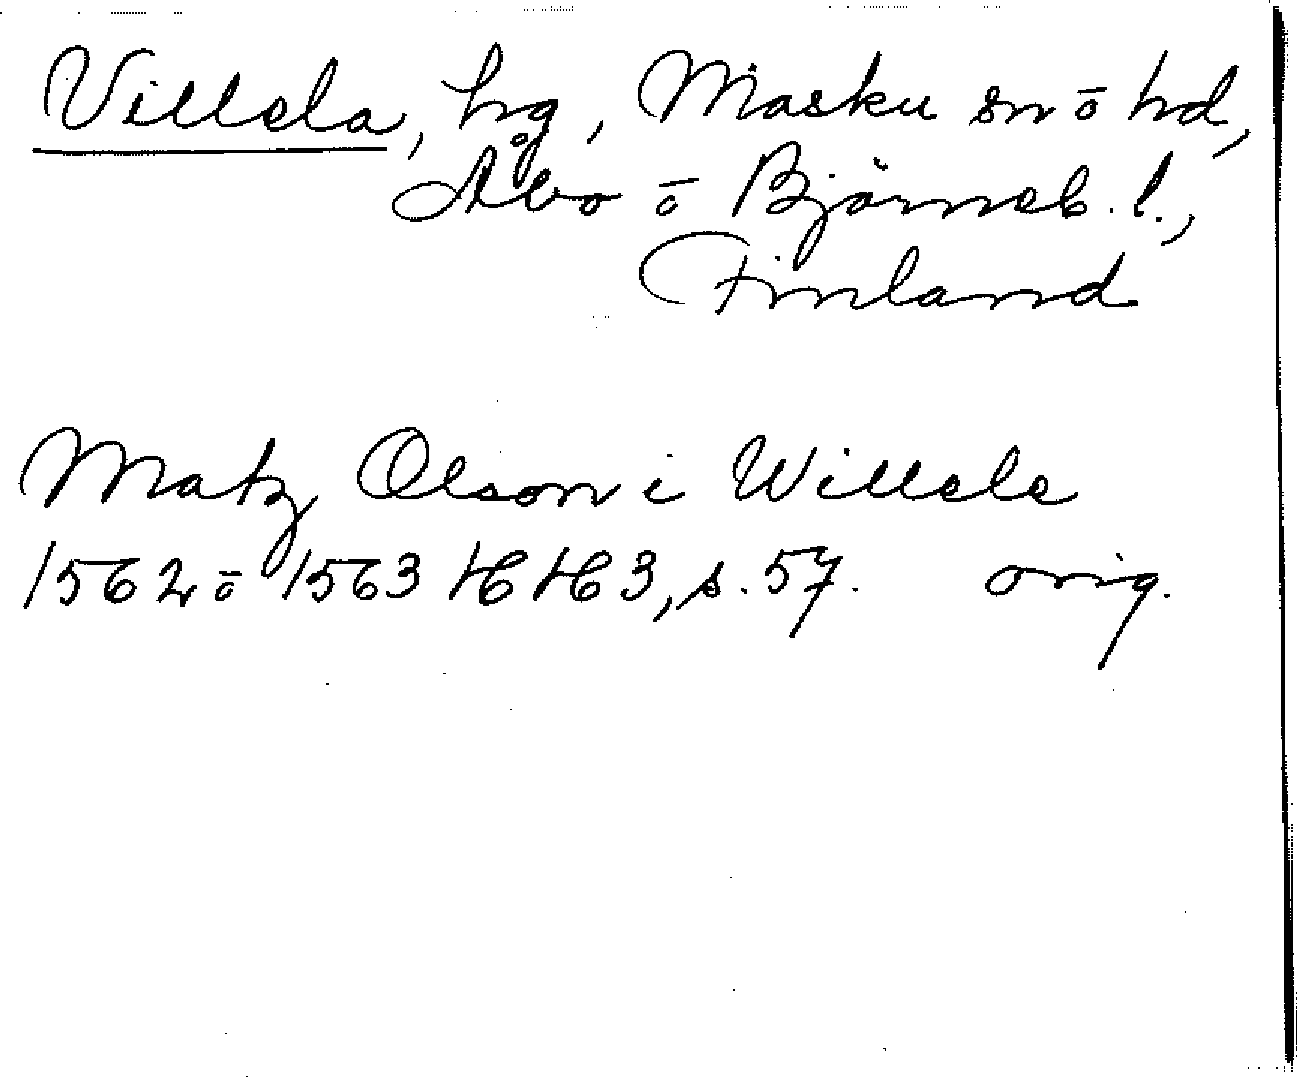 Villela, hg, Masku sn ō hd,
Åbo ō Björneb. l.,
Finland
Matz Olsson i Willele
1562 ō 1563 HH 3, s. 57. orig.